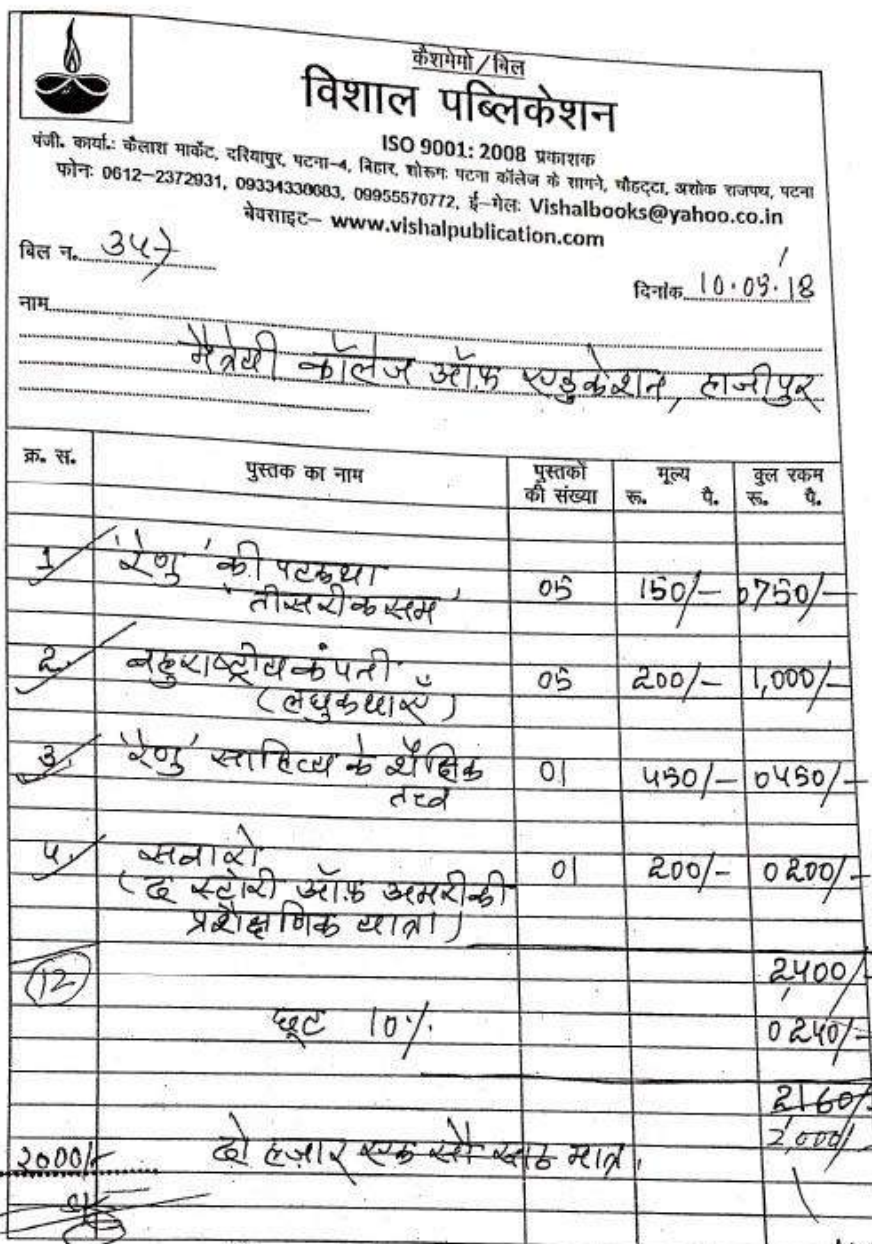 कैशमेमो/बिल
विशाल पब्लिकेशन
ISO 9001: 2008 प्रकाशक
पंजी. कार्या.: कैलाश मार्केट, दरियापुर, पटना-4, बिहार, शोरूमः पटना कॉलेज के सामने, चौहट्टा, अशोक राजपथ, पटना
फोनः 0612-2372931, 09334330683, 09955570772, ई-मेलः Vishalbooks@yahoo.co.in
वेबसाइट- www.vishalpublication.com
बिल न. 357
दिनांक 10.09.18
नाम
मैत्रेयी कॉलेज ऑफ़ एण्डुकेशन, हाजीपुर
क्र. स. पुस्तक का नाम पुस्तकों की संख्या मूल्य रू. पै. कुल रकम रू. पै.
1 'रेणु' की पटकथा 05 150/- 0750/-
'तीसरी कसम'
2. बहुराष्ट्रीय कंपनी 05 200/- 1,000/-
(लघुकथाएँ)
3. 'रेणु' साहित्य के शैक्षिक 01 450/- 0450/-
तत्त्व
4. सवारो 01 200/- 0200/-
(द स्टोरी ऑफ़ अमरीकी
प्रशैक्षणिक यात्रा)
12 2,400/-
छूट 10% 0240/-
2160/-
2,000/-
2000/- दो हज़ार एक सौ साठ मात्र।